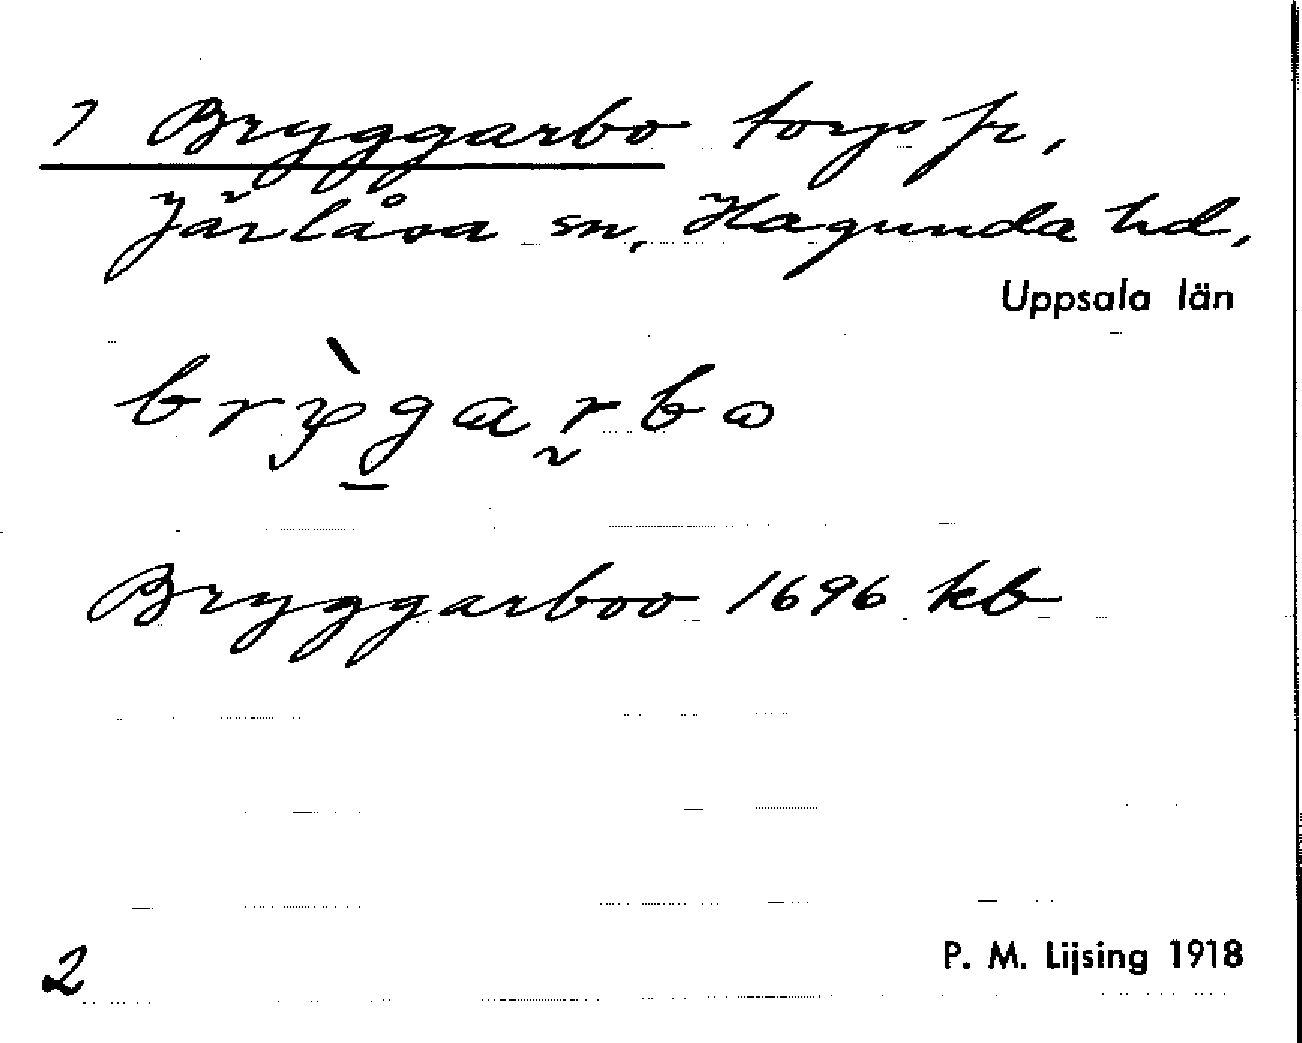 1 Bryggarbo torp fr,
Järlåsa sn, Hagunda hd,
Uppsala län
brỳgarbo
Bryggarboo 1696 kb
P. M. Lijsing 1918
2